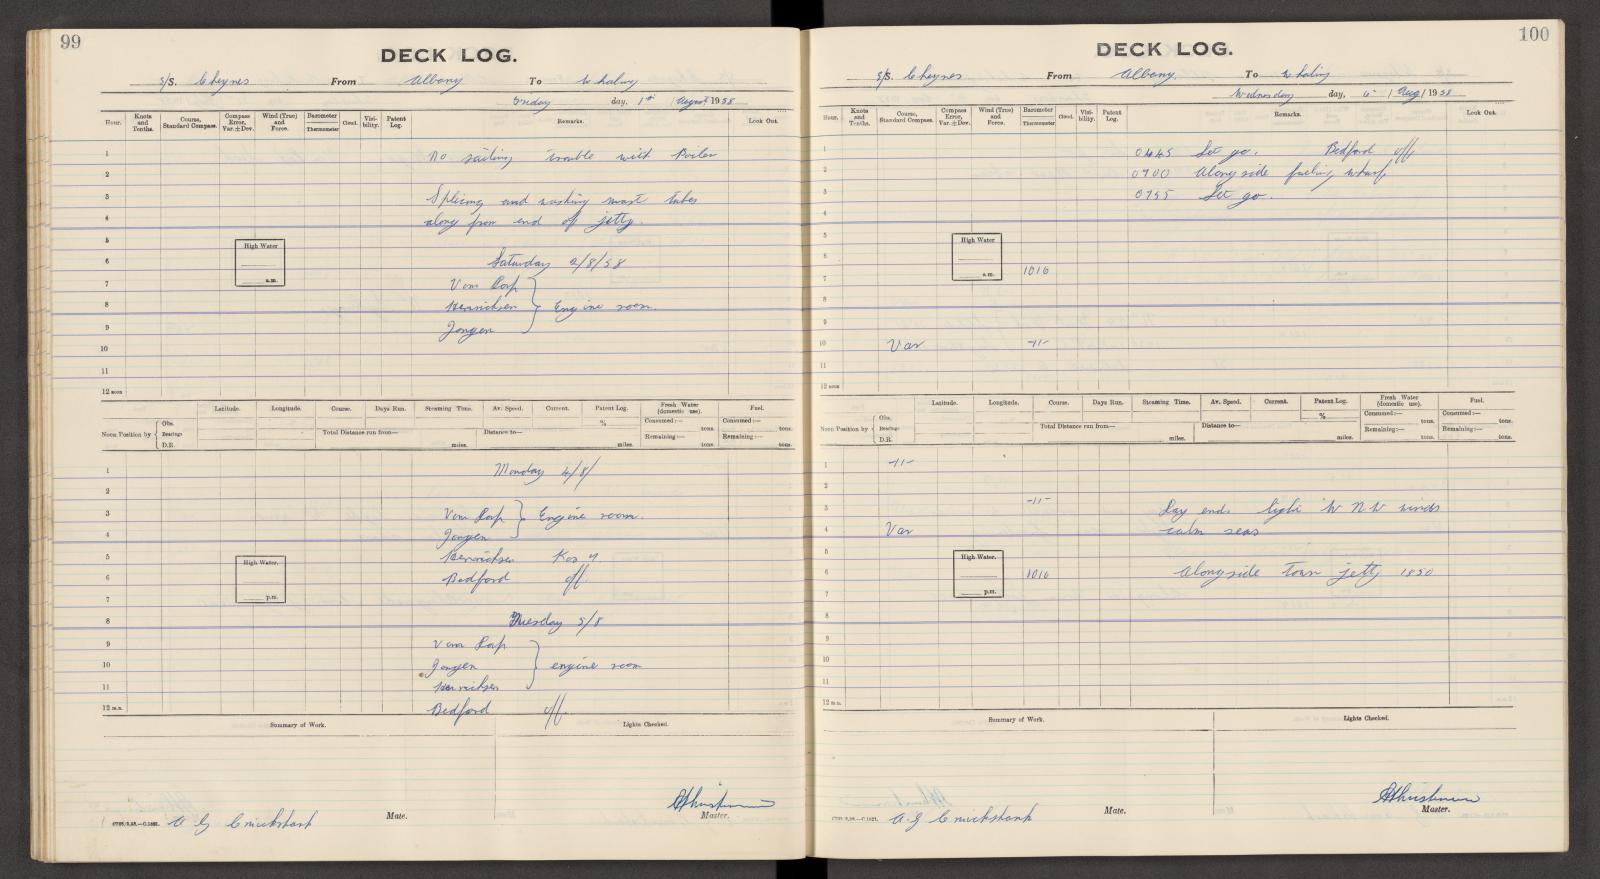 99
DECK LOG.
S/S. Cheynes From Albany To Whaling
Friday day, 1st August 1958
Hour. Knots and Tenths. Course, Standard Compass. Compass Error, Var. ± Dev. Wind (True) and Force. Barometer Thermometer Cloud. Visibility. Patent Log. Remarks. Look Out.
1 No sailing trouble with Boiler
2
3 Splicing and washing mast tubes
4 along from end of jetty.
5 High Water
6 Saturday 2/8/58
a.m.
7 Van Dorp
8 Henrichsen Engine room.
9 Jongen
10
11
12 noon
Latitude. Longitude. Course. Days Run. Steaming Time. Av. Speed. Current. Patent Log. Fresh Water (domestic use). Fuel.
Noon Position by Obs. Bearings D.R. Total Distance run from— miles. Distance to— miles. % Consumed:— tons. Remaining:— tons. Consumed:— tons. Remaining:— tons.
1 Monday 4/8/
2
3 Van Dorp Engine room.
4 Jongen
5 Henrichsen Kos 7
High Water.
6 Bedford off
p.m.
7
8 Tuesday 5/8
9 Van Dorp
10 Jongen engine room
11 Henrichsen
12 m.n. Bedford off.
Summary of Work. Lights Checked.
A G Cruickshank Mate. Master.
100
DECK LOG.
S/S. Cheynes From Albany. To Whaling
Wednesday day, 6 / Aug / 1958
Hour. Knots and Tenths. Course, Standard Compass. Compass Error, Var. ± Dev. Wind (True) and Force. Barometer Thermometer Cloud. Visibility. Patent Log. Remarks. Look Out.
1 0445 Let go. Bedford off
2 0700 Alongside fueling wharf
3 0755 Let go.
4
5 High Water
6
7 a.m. 1016
8
9
10 Var -11-
11
12 noon
Latitude. Longitude. Course. Days Run. Steaming Time. Av. Speed. Current. Patent Log. Fresh Water (domestic use). Fuel.
Noon Position by Obs. Bearings D.R. Total Distance run from— miles. Distance to— miles. % Consumed:— tons. Remaining:— tons. Consumed:— tons. Remaining:— tons.
1 -11-
2
3 -11- Day ends light W NW winds
4 Var calm seas
5 High Water.
6 1016 Alongside Town jetty 1850
p.m.
7
8
9
10
11
12 m.n.
Summary of Work. Lights Checked.
A.G Cruickshank Mate. Master.